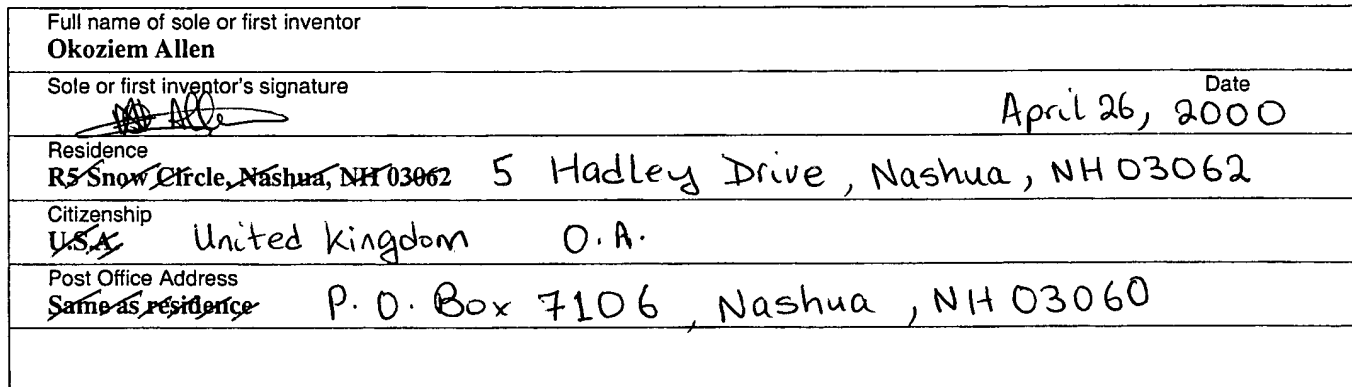 Full name of sole or first inventor
Okoziem Allen
Sole or first inventor's signature
Date
Allen
April 26, 2000
Residence
R5 Snow Circle, Nashua, NH 03062 5 Hadley Drive, Nashua, NH 03062
Citizenship
U.S.A. United Kingdom O.A.
Post Office Address
Same as residence P.O. Box 7106, Nashua, NH 03060